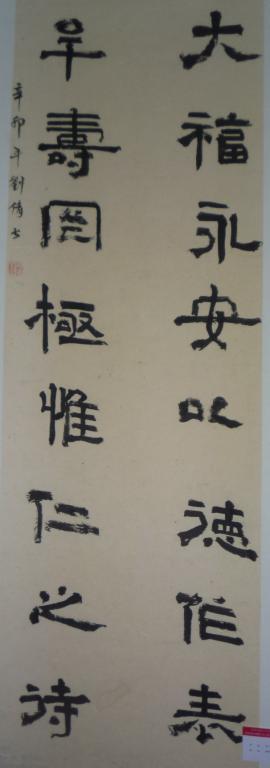 大福永安以德作表
壽罔極惟仁之待
辛卯年劉倩書